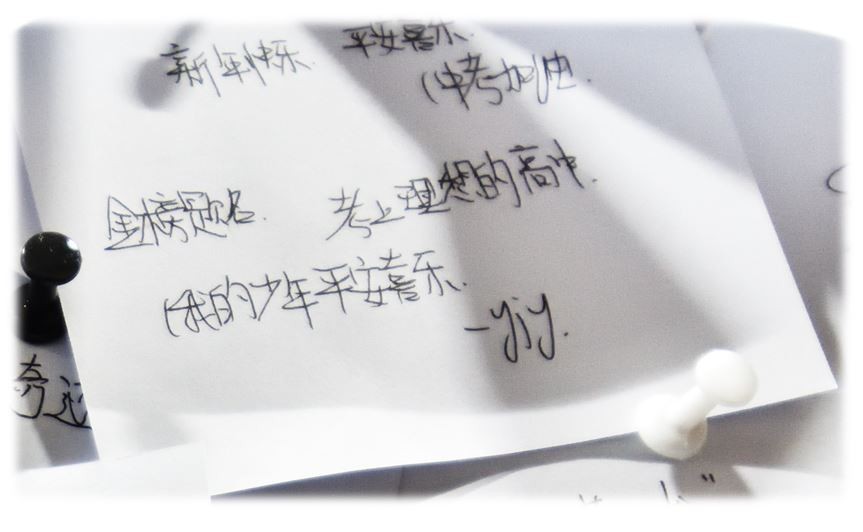 新年快乐 平安喜乐.
(中考加油.
金榜题名. 考上理想的高中.
(我的少年平安喜乐.
-yjy.